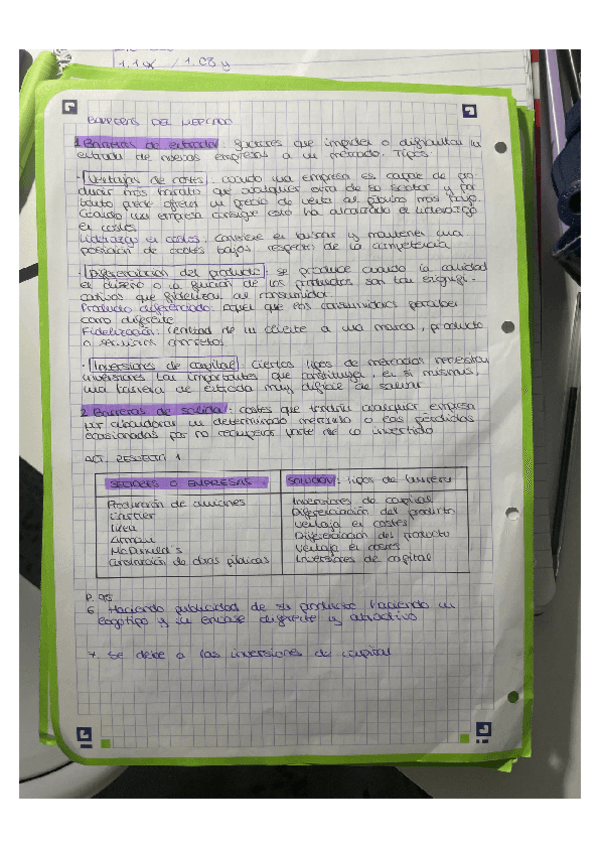 1.1 / 1.08 y
BARRERAS DEL MERCADO
1. Barreras de entrada: factores que impiden o dificultan la
entrada de nuevas empresas a un mercado. Tipos:
· Ventajas de costes: cuando una empresa es capaz de pro-
ducir más barato que cualquier otra de su sector y por
tanto puede ofrecer un precio de venta al público más bajo.
Cuando una empresa consigue esto ha alcanzado el liderazgo
en costes.
Liderazgo en costes: consiste en buscar y mantener una
posición de costes bajos respecto de la competencia
· Diferenciación del producto: se produce cuando la calidad
el diseño o la función de los productos son tan signifi-
cativos que fidelizan al consumidor.
Producto diferenciado: aquel que los consumidores perciben
como diferente.
Fidelización: lealtad de un cliente a una marca, producto
o servicios concretos.
· Inversiones de capital: Ciertos tipos de mercados necesitan
inversiones tan importantes que constituyen, en sí mismas,
una barrera de entrada muy difícil de salvar
2. Barreras de salida: costes que tendría cualquier empresa
por abandonar un determinado mercado o las pérdidas
ocasionadas por no recuperar parte de lo invertido
ACT. RESUELTA 1
SECTORES O EMPRESAS: SOLUCIÓN: tipos de barrera
Producción de aviones Inversiones de capital
Cartier Diferenciación del producto
Ikea Ventaja en costes
Armani Diferenciación del producto
McDonald's Ventaja en costes
Construcción de obras públicas Inversiones de capital
6. Haciendo publicidad de su producto haciendo un
logotipo y un envase diferente y atractivo
7. Se debe a las inversiones de capital